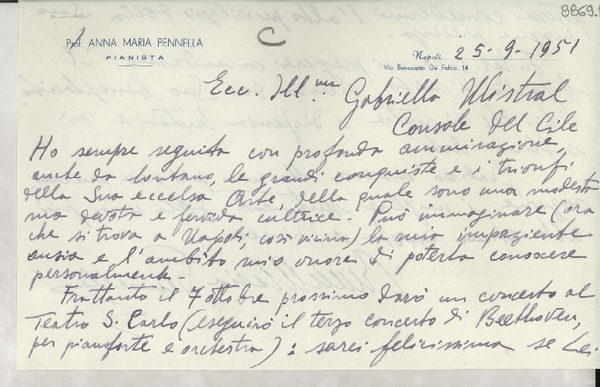 8869.
Prof. ANNA MARIA PENNELLA
PIANISTA
Napoli, 25-9-1951
Via Benedetto De Falco, 14
Ecc. Ill.ma Gabriella Mistral
Console del Cile
Ho sempre seguita con profonda ammirazione,
anche da lontano, le grandi conquiste e i trionfi
della Sua eccelsa Arte, della quale sono una modesta
ma devota e fervida cultrice. Può immaginare (ora
che si trova a Napoli, così vicina) la mia impaziente
ansia e l'ambito mio onore di poterla conoscere
personalmente -
Frattanto il 7 ottobre prossimo darò un concerto al
Teatro S. Carlo (eseguirò il terzo concerto di Beethoven,
per pianoforte e orchestra): sarei felicissima se Lei